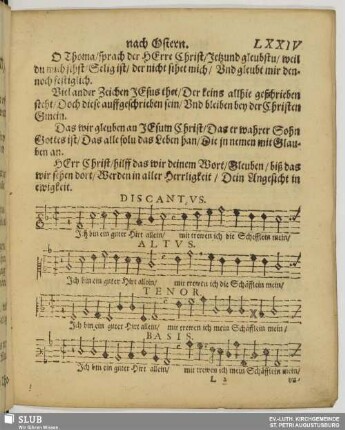 nach Ostern. LXXIV
O Thoma/ sprach der HErre Christ/ Jetzund gleubstu/ weil
du mich sihst/ Selig ist/ der nicht sihet mich/ Vnd gleubt mir den-
noch festiglich.
Viel ander Zeichen JEsus thet/ Der keins allhie geschrieben
steht/ Doch diese auffgeschrieben sein/ Vnd bleiben bey der Christen
Gmein.
Das wir gleuben an JEsum Christ/ Das er wahrer Sohn
Gottes ist/ Das alle soln das Leben han/ Die in nemen mit Glau-
ben an.
HErr Christ/ hilff das wir deinem Wort/ Gleuben/ biß das
wir sehen dort/ Werden in aller Herrligkeit/ Dein Angesicht in
ewigkeit.
DISCANTVS.
Ich bin ein guter Hirt allein/ mit trewen ich die Schefflein mein/
ALTVS.
Ich bin ein guter Hirt allein/ mit trewen ich die Schäfflein mein/
TENOR
Ich bin ein guter Hirt allein/ mit trewen ich mein Schäfflein mein/
BASIS.
Ich bin ein guter Hirt allein/ mit trewen ich mein Schäfflein mein/
L
SLUB
Wir führen Wissen.
EV.-LUTH. KIRCHGEMEINDE
ST. PETRI AUGUSTUSBURG